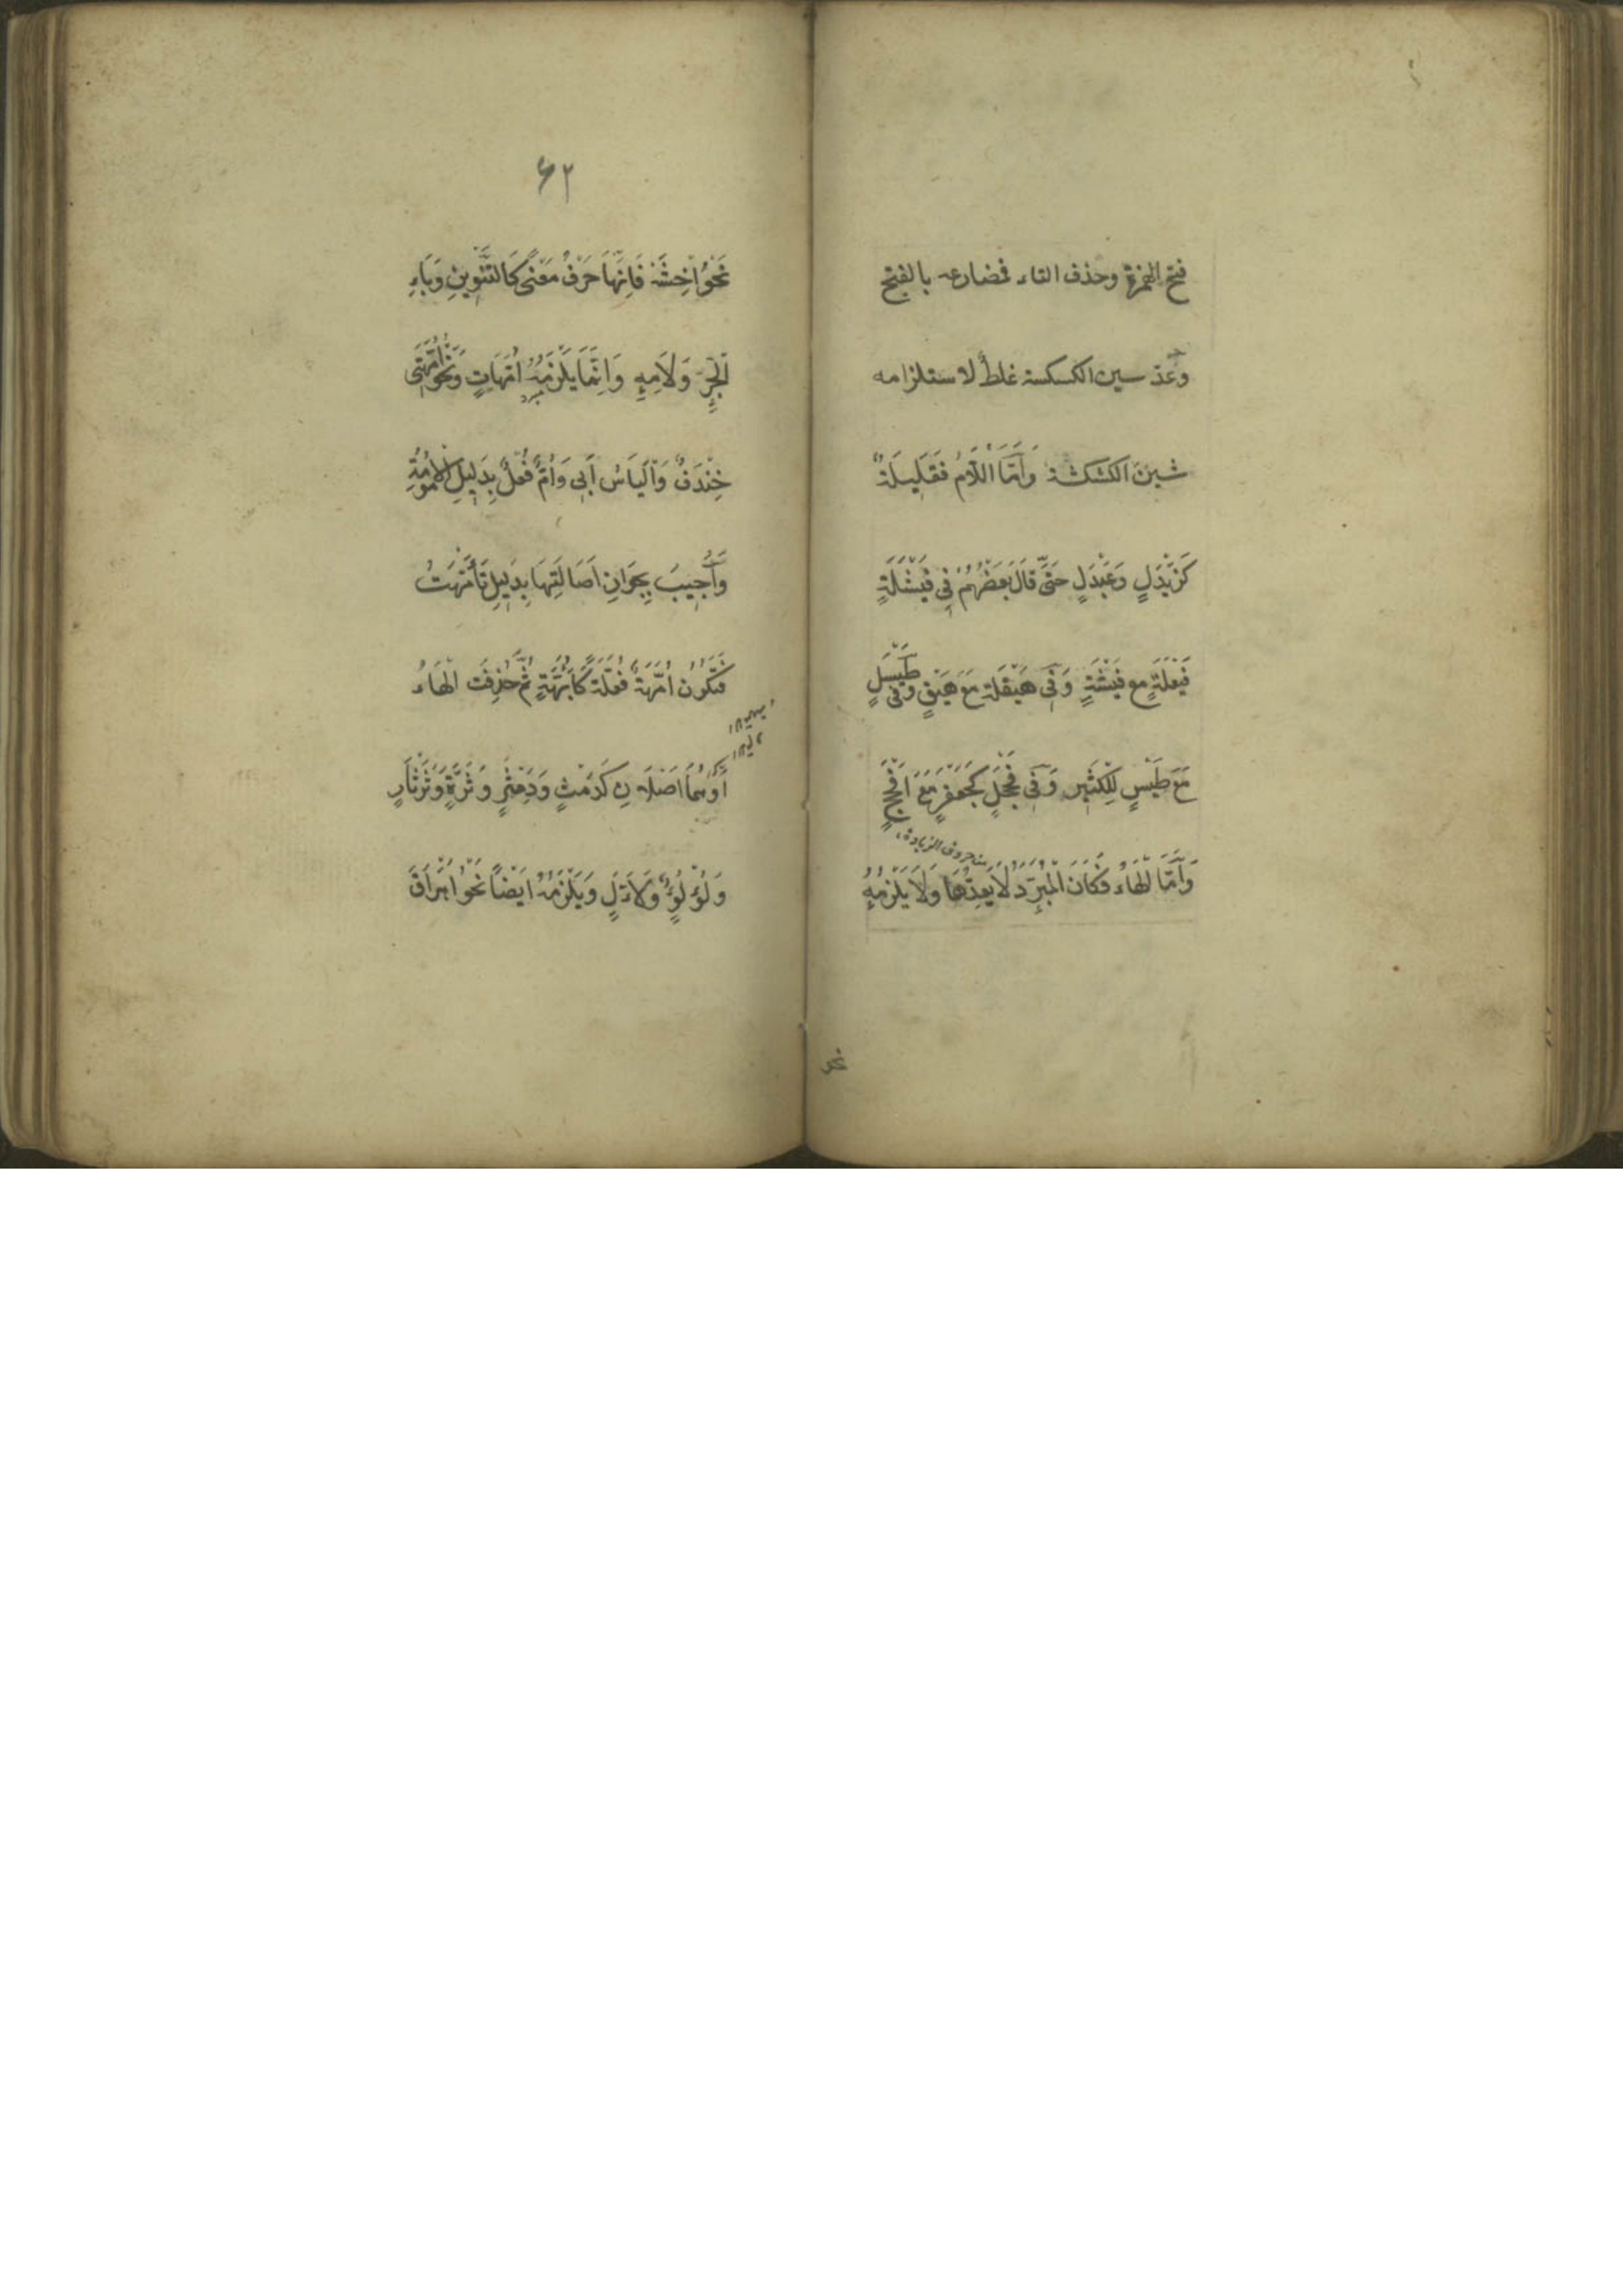 فتح الهمزة وحذف التاء فمضارعه بالفتح
وعد سين الكسكسة غلط لاستلزامه
شين الكشكشة وَأَمَّا اللَّامُ فَقَلِيلَةٌ
كَزَيْدَلٍ وَعَبْدَلٍ حَتَّى قَالَ بَعْضُهُمْ فِي فَيْشَلَةٍ
فَيْعَلَةٍ مع فَيْشَةٍ وَفِي هَيْقَلَة مَعَ هَيْقٍ وَفِي طَيْسَلٍ
مَعَ طَيْسٍ لِلْكَثِيرِ وَفِي فَحْجَلٍ كَجَعْفَرٍ مَعَ أَفْحَجٍ
من حروف الزيادة
وَأَمَّا الْهَاءُ فَكَانَ الْمُبَرِّدُ لَا يَعُدُّهَا وَلَا يَلْزَمُهُ
نحو
٦٢
نَحْوُ اخْشَهْ فَإِنَّهَا حَرْفُ مَعْنًى كَالتَّنْوِينِ وَبَاءِ
الْجَرِّ وَلَامِهِ وَإِنَّمَا يَلْزَمُهُ أُمَّهَاتٍ وَنَحْوُ أُمَّهَتِي
مبرد
خِنْدَفُ وَالْيَاسُ أَبِي وَأُمٌّ فُعْلٌ بِدَلِيلِ الْأُمُومَةِ
وَأُجِيبَ بِجَوَازِ أَصَالَتِهَا بِدَلِيلِ تَأَمَّهَتْ
فَتَكُونُ أُمَّهَةٌ فُعَّلَةً كَأُبَّهَةٍ ثُمَّ حُذِفَت الْهَاءُ
أَوْ هُمَا أَصْلَانِ كَدَمِثٍ وَدِمَثْرٍ وَثَرَّةٍ وَثَرْثَارٍ
وَلُؤْلُؤٍ وَلَأْآلٍ وَيَلْزَمُهُ أَيْضًا نَحْوُ أَهْرَاقَ